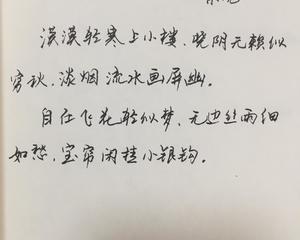 漠漠轻寒上小楼，晓阴无赖似
穷秋，淡烟流水画屏幽。
自在飞花轻似梦，无边丝雨细
如愁，宝帘闲挂小银钩。